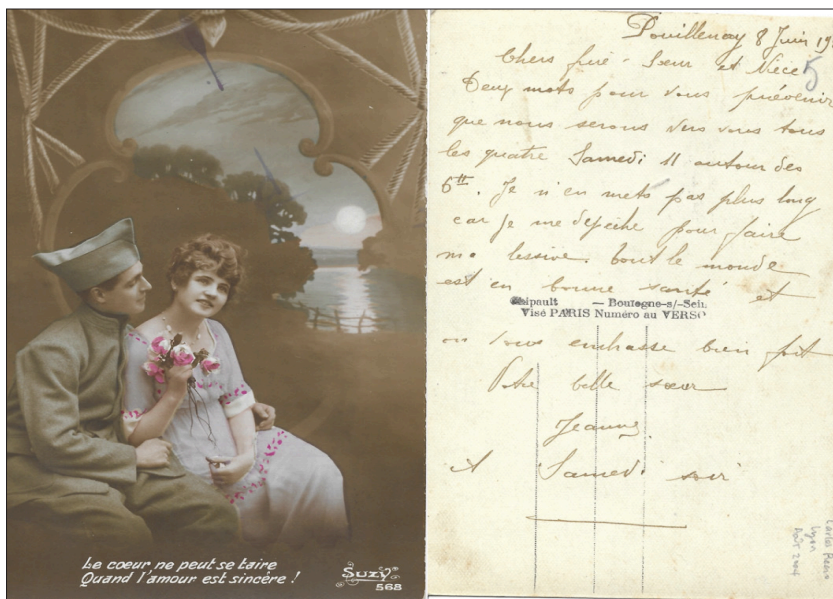 Le coeur ne peut se taire
Quand l'amour est sincère !
SUZY
568
Pouillenay 8 Juin 19
Chers frère - Sœur et Nièce
Deux mots pour vous prévenir
que nous serons vers vous tous
les quatre Samedi 11 autour des
5H. Je n'en mets pas plus long
car je me dépêche pour faire
ma lessive. tout le monde
est en bonne santé et
Chipault — Boulogne-s/-Sein.
Visé PARIS Numéro au VERSO
on vous embrasse bien fort
Votre belle sœur
Jeanne
A Samedi soir
Lyon
Août 2004